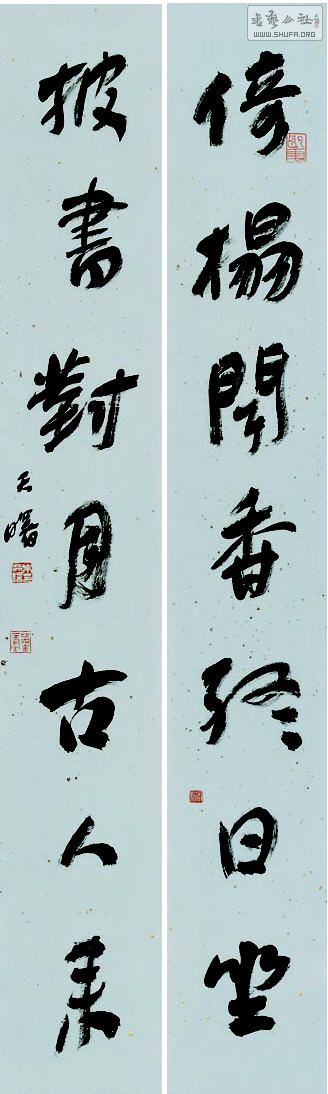 倚榻闻香终日坐
披書對月古人来
天曙
書藝公社
WWW.SHUFA.ORG